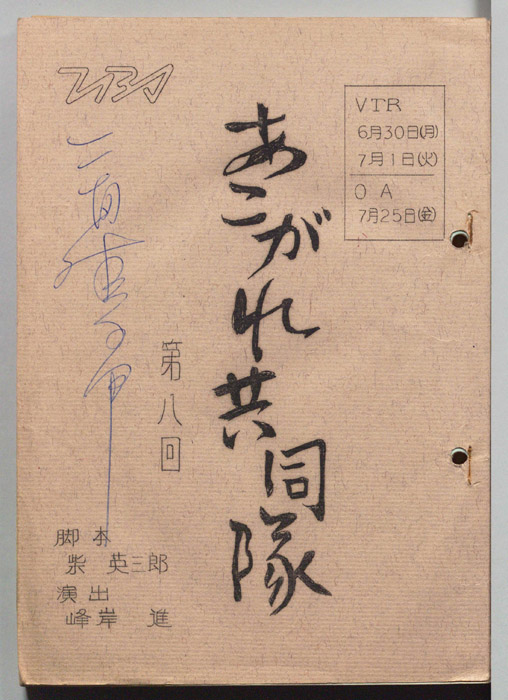 TBS
VTR
6月30日(月)
7月1日(火)
OA
7月25日(金)
あこがれ共同隊
第八回
脚本
柴 英三郎
演出
峰岸 進